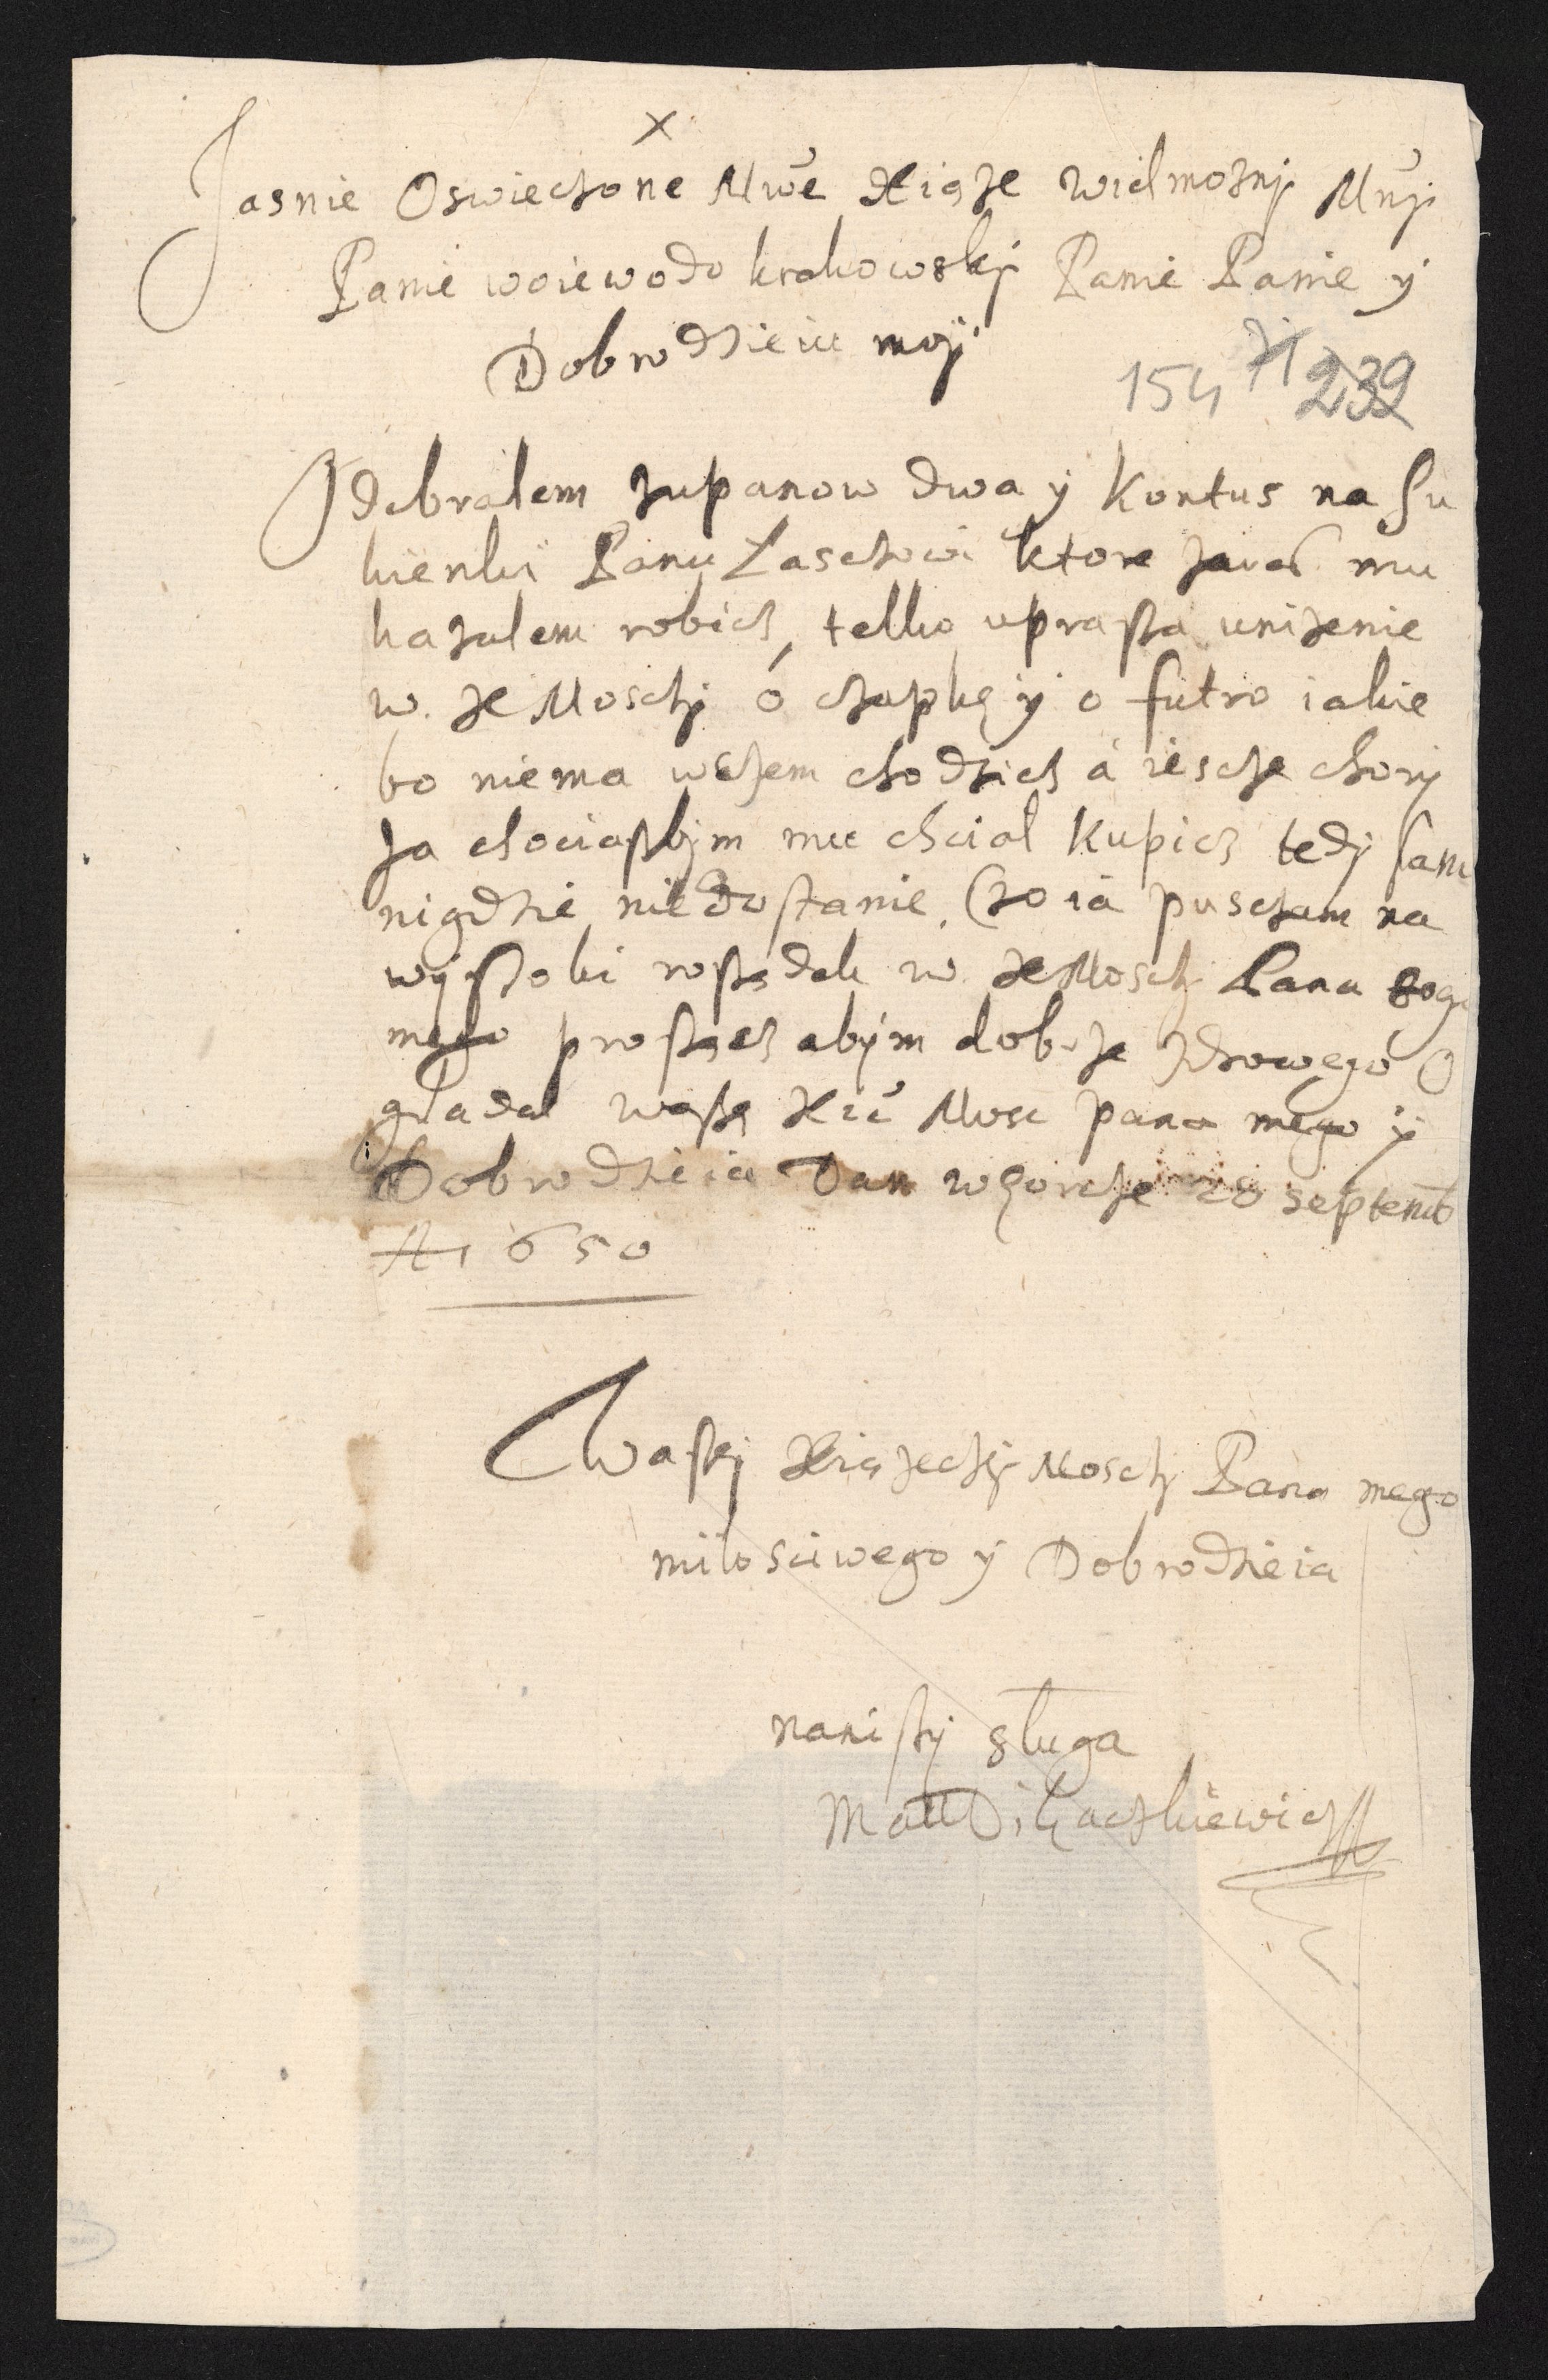 x
Jasnie Oswieczone Mwe Xiąze wielmozny Mnÿ
Panie woiewodo krakowskÿ Panie Panie ÿ
Dobrodzieiu moÿ
154 71 239
Odebralem zupanow dwa ÿ Kontus na su
kienki Panu Lasczowi ktore zaras mu
kazalem robicz, telko uprasza unizenie
w. X Mosczÿ o czapkę ÿ o futro iakie
bo niema wczem chodzicz a iescze chorÿ
Ja chociaszbÿm mu chcial kupicz tedÿ sam
nigdzie niedostanie. Czo ia pusczam na
wÿsoki roszsądek w. X Mosczÿ Pana Boga
mego proszącz abÿm dobrze zdrowego O
gladal waszą Xcć Mosc pana mego ÿ
Dobrodzieia Dan wGorcze 28 septemb
A 1650
Waszÿ Xiązeczÿ Mosczÿ Pana mego
milosciwego ÿ Dobrodzieia
naniszÿ sluga